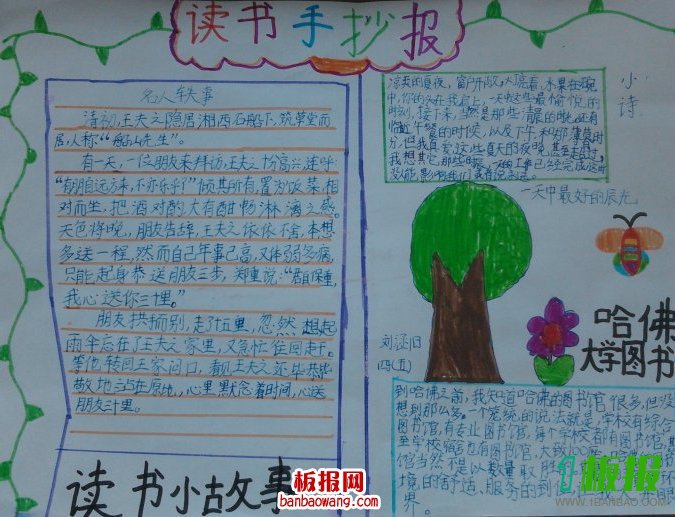 读书手抄报
名人轶事
清初,王夫之隐居湘西石船下,筑草堂而
居,人称“船山先生”。
有一天,一位朋友来拜访,王夫之十分高兴,连呼
“有朋自远方来,不亦乐乎?”倾其所有,置为饭菜,相
对而坐,把酒对酌,大有酣畅淋漓之感。
天色将晚,朋友告辞,王夫之依依不舍,本想
多送一程,然而自己年事已高,又体弱多病,
只能起身恭送朋友三步,郑重说:“君自保重,
我心送你三十里。”
朋友拱手而别,走了十五里,忽然想起
雨伞忘在了王夫之家里,又急忙往回走。
等他转回王家门口,看见王夫之还毕恭毕
敬地立站在原地,心里默念着时间,心送
朋友三十里。
读书小故事
小诗
凉爽的夏夜,窗户开敞,大亮着,水果在碗
中,你的头在我肩上,一天中这些最愉悦的
时刻,接下来,当然是那些清晨的时光,还有
临近午餐的时候,以及下午和那薄暮时
分,但我真爱这些夏天的夜晚,甚至
我想,其它那些时候,一天的工作已经完成
一天中最好的辰光
刘泛旧
四(五)
哈佛
大学图书
到哈佛之前,我知道哈佛的图书馆很多,但没
想到那么多。一个笼统的说法就是学校有综合
图书馆,有专业图书馆,每个学校都有图书馆,
至学校宿舍也有图书馆,大致100
馆当然不是以数量取胜
境的舒适,服务的到
界。
板报网
banbaowang.com
板报
WWW.1BANBAO.COM